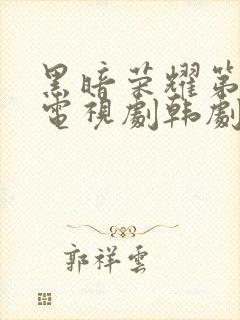 黑暗荣耀第
電視劇韩劇
郭祥雲